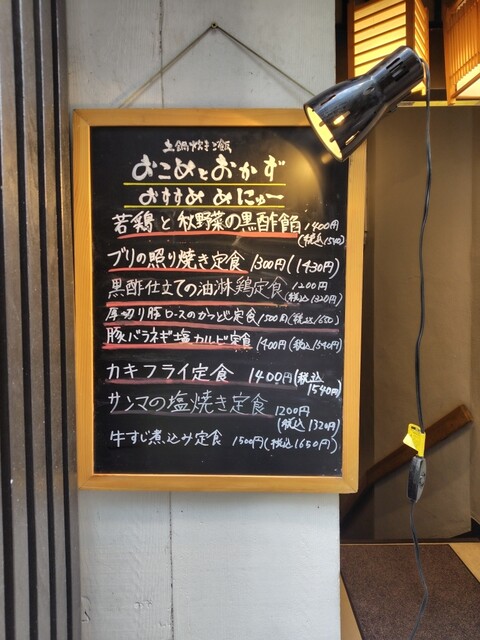 土鍋炊きご飯
おこめとおかず
おすすめ めにゅー
若鶏と秋野菜の黒酢餡 1400円
(税込1540)
ブリの照り焼き定食 1300円(1430円)
黒酢仕立ての油淋鶏定食 1200円
(税込1320円)
厚切り豚ロースのかつとじ定食 1500円(税込1650)
豚バラネギ塩カルビ定食 1400円(税込1540円)
カキフライ定食 1400円(税込
1540円)
サンマの塩焼き定食 1200円
(税込1320円)
牛すじ煮込み定食 1500円(税込1650円)